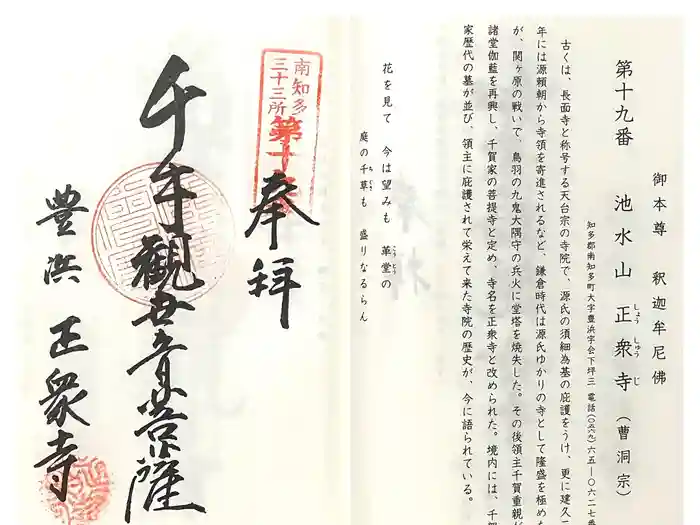 御本尊 釈迦牟尼佛
第十九番 池水山 正衆寺（曹洞宗）
しょう しゅう じ
知多郡南知多町大字豊浜字会下坪三 電話（〇五六九）六五―〇六二七番
古くは、長面寺と称号する天台宗の寺院で、源氏の須細為基の庇護をうけ、更に建久
年には源頼朝から寺領を寄進されるなど、鎌倉時代は源氏ゆかりの寺として隆盛を極め
が、関ヶ原の戦いで、鳥羽の九鬼大隅守の兵火に堂塔を焼失した。その後領主千賀重親が
諸堂伽藍を再興し、千賀家の菩提寺と定め、寺名を正衆寺と改められた。境内には、千賀
家歴代の墓が並び、領主に庇護されて栄えて来た寺院の歴史が、今に語られている。
花を見て 今は望みも 革堂の
こう どう
庭の千草も 盛りなるらん
ちぐさ
南知多
三十三所
第十
奉拝
千手観世音菩薩
豊浜 正衆寺